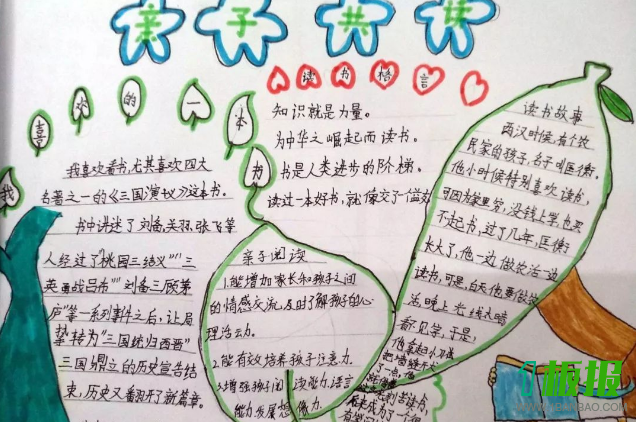 亲子共读
我喜欢的一本书
我喜欢看书，尤其喜欢四大
名著之一的《三国演义》这本书。
书中讲述了刘备，关羽，张飞等
人经过了“桃园三结义”“三
英画战吕布”“刘备三顾茅
庐”等一系列事件之后，让局
势转为“三国统归西晋”
三国鼎立的历史宣告结
束，历史又翻开了新篇章。
读书格言
知识就是力量。
为中华之崛起而读书。
书是人类进步的阶梯。
读过一本好书，就像交了一个益友
亲子阅读
1.能增加家长和孩子之间
的情感交流，及时了解孩子的心
理活动。
2.能有效培养孩子注意力
3.增强孩子阅读能力，语言
能力，发展想像力。
读书故事
西汉时候，有个农
民家的孩子，名子叫匡衡。
他小时候特别喜欢读书，
可因为家里穷，没钱上学，也买
不起书，过了几年，匡衡
长大了，他一边做农活一边
读书，可是，白天他要做农
活，晚上光线太暗
看不见字，于是，
他拿起小刀
把墙缝
了一点
板报